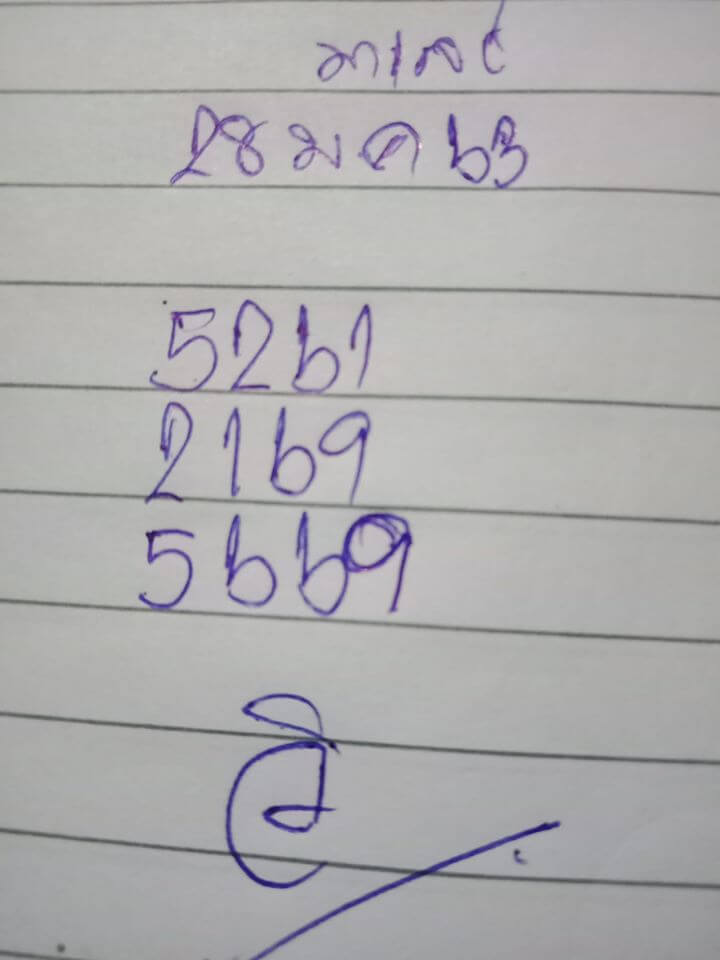 มาเลย์
28 มค 63
5261
2169
5669